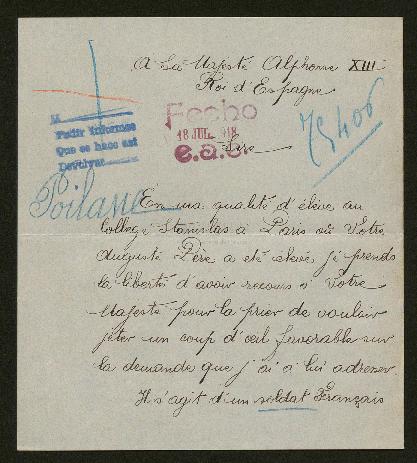 A Sa Majesté Alphonse XIII
Roi d'Espagne
Fecho
18 JUL. 1918
e.a.c.
Pedir informes
Que se hace así
Devolver
75406
Sire
Poilane
En ma qualité d'élève au
Collège Stanislas à Paris où Votre
Auguste Père a été élevé je prends
la liberté d'avoir recours à Votre
Majesté pour la prier de vouloir
jeter un coup d'œil favorable sur
la demande que j'ai à lui adresser.
Il s'agit d'un soldat Français